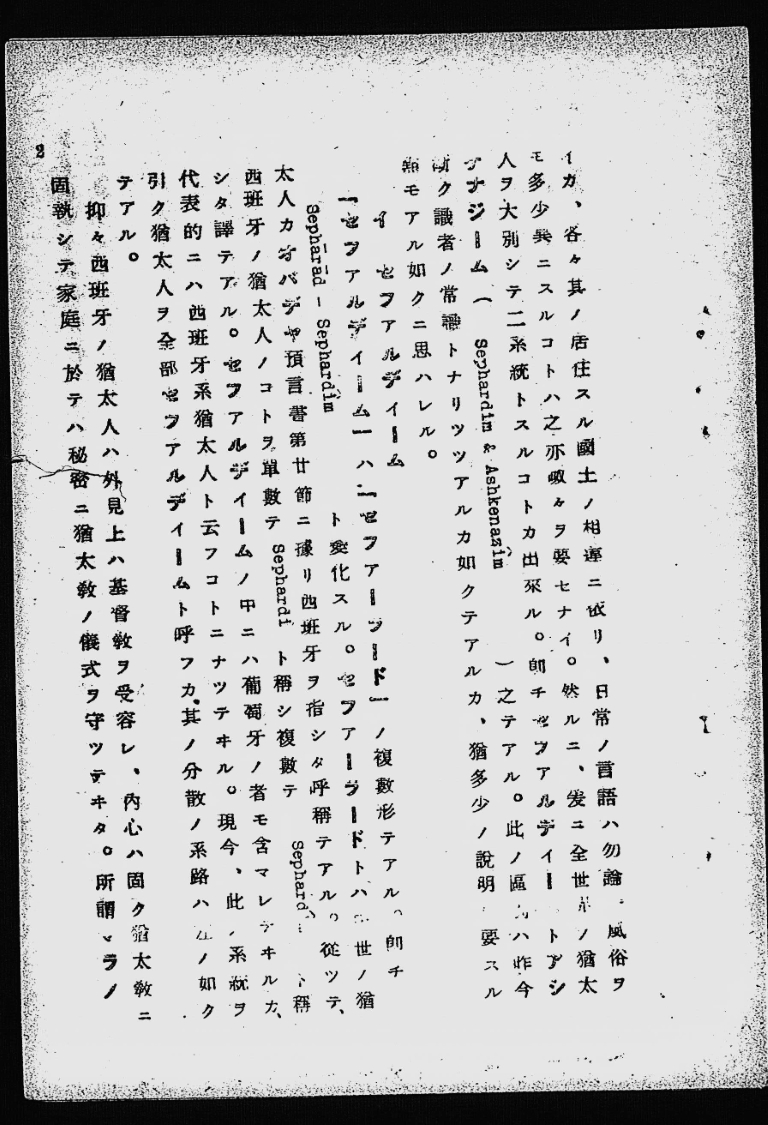 イカ、各々其ノ居住スル國土ノ相違ニ依リ、日常ノ言語ハ勿論、風俗ヲ
モ多少異ニスルコトハ之亦敢々ヲ要セナイ。然ルニ、爰ニ全世界ノ猶太
人ヲ大別シテ二系統トスルコトカ出來ル。卽チセフアルデイートアシ
ナジーム( Sephardim & Ashkenazîm )之テアル。此ノ區ハ昨今
ク識者ノ常識トナリツツアルカ如クテアルカ、猶多少ノ說明要スル
モアル如クニ思ハレル。
イ セフアルデイーム
「セフアルデイーム」ハ「セフアーラード」ノ複數形テアル。卽チ
Sephārād - Sephardîm ト變化スル。セフアーラードトハ世ノ猶
太人カオバデヤ預言書第廿節ニ據リ西班牙ヲ指シタ呼稱テアル。從ツテ、
西班牙ノ猶太人ノコトヲ單數テ Sephardi ト稱シ複數テ Sephard ト稱
シタ譯テアル。セフアルデイームノ中ニハ葡萄牙ノ者モ含マレテヰルカ、
代表的ニハ西班牙系猶太人ト云フコトニナツテヰル。現今、此ノ系統ヲ
引ク猶太人ヲ全部セフアルデイームト呼フカ、其ノ分散ノ系路ハ左ノ如ク
テアル。
抑々西班牙ノ猶太人ハ外見上ハ基督敎ヲ受容レ、內心ハ固ク猶太敎ニ
固執シテ家庭ニ於テハ秘密ニ猶太敎ノ儀式ヲ守ツテヰタ。所謂マラノ
2